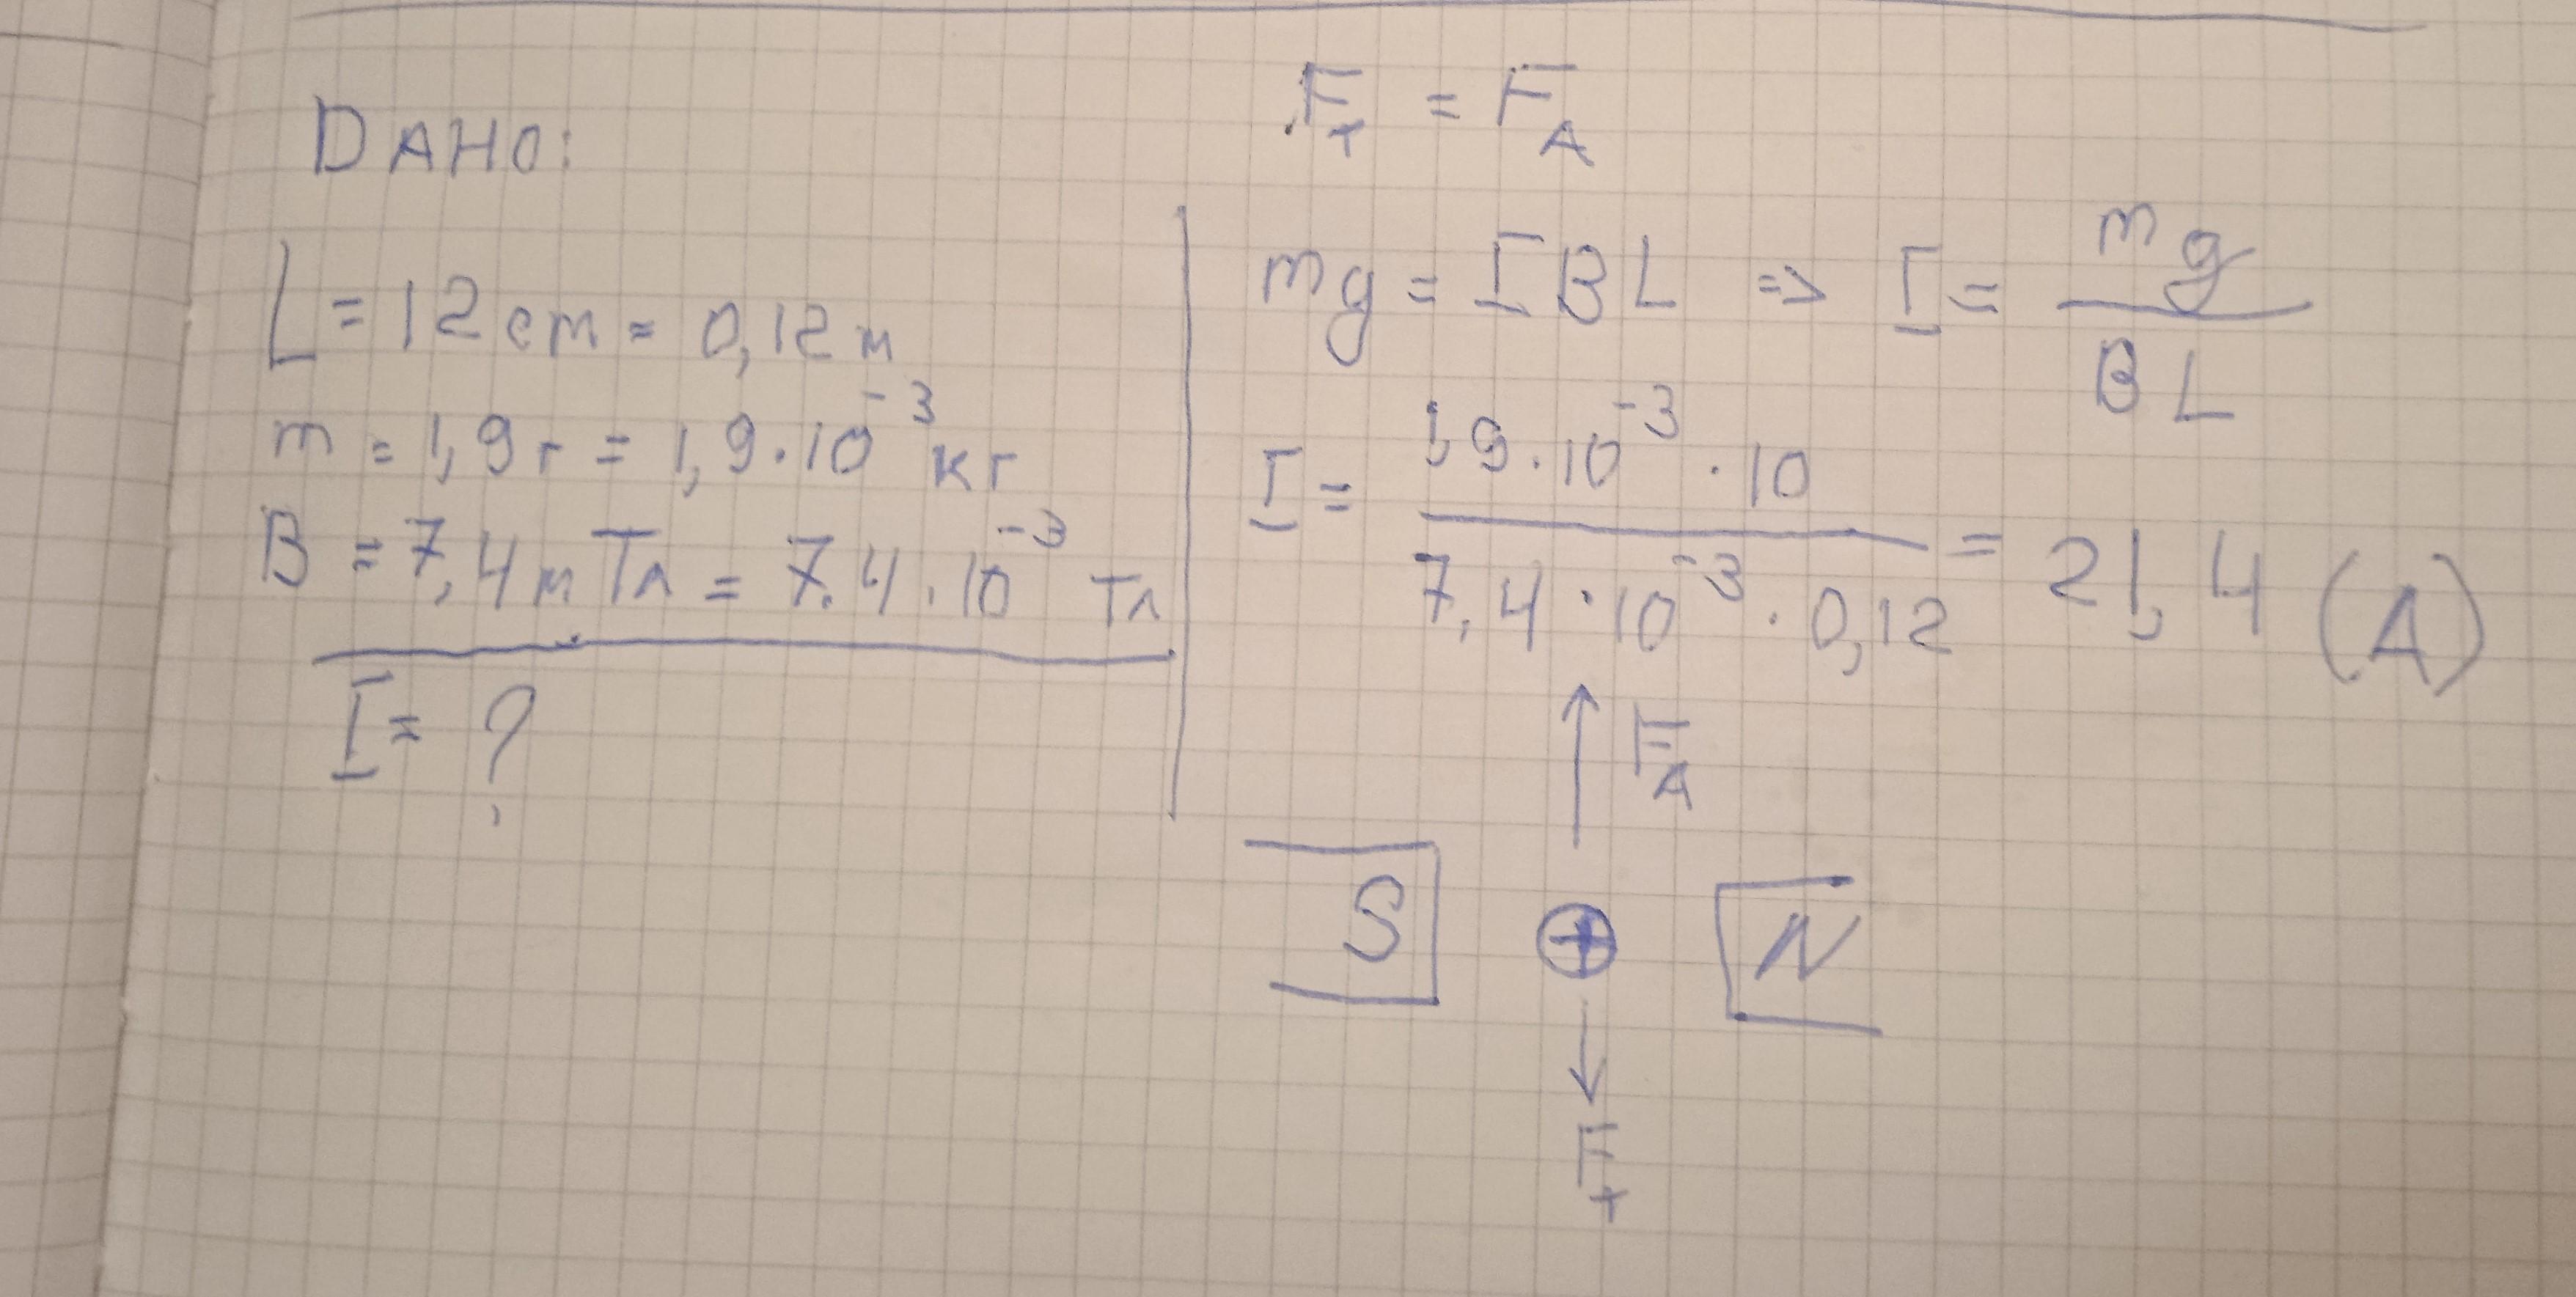 DАНО:
L = 12 cm = 0,12 м
m = 1,9 г = 1,9 · 10⁻³ кг
B = 7,4 м Тл = 7.4 · 10⁻³ Тл
I = ?
Fт = FА
mg = IBL => I = mg / BL
I = 1,9 · 10⁻³ · 10 / 7,4 · 10⁻³ · 0,12 = 21,4 (А)
FА
S + N
Fт